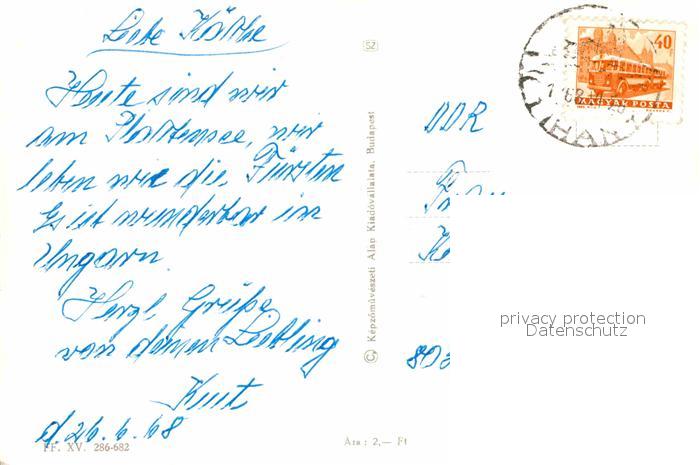 Liebe Käthe
Heute sind wir
am Plattensee, wir
leben wie die Fürsten
Es ist wunderbar in
Ungarn.
Herzl. Grüße
von deinem Liebling
Kurt
d. 26.6.68
FF. XV. 286-682
Ára: 2,— Ft
52
© Képzőművészeti Alap Kiadóvállalata, Budapest
40 f
MAGYAR POSTA
TIHANY
DDR
Frau
803
privacy protection
Datenschutz